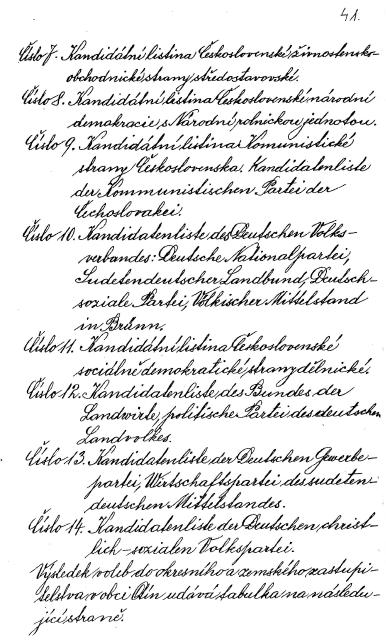 41.
Číslo 7. Kandidátní listina Československé živnostensko-
obchodnické strany středostavovské.
Číslo 8. Kandidátní listina Československé národní
demokracie s Národní rolnickou jednotou.
Číslo 9. Kandidátní listina Komunistické
strany Československa. Kandidatenliste
der Kommunistischen Partei der
Čechoslovakei.
Číslo 10. Kandidatenliste des Deutschen Volks-
verbandes: Deutsche Nationalpartei,
Sudetendeutscher Landbund, Deutsch-
soziale Partei, Völkischer Mittelstand
in Brünn.
Číslo 11. Kandidátní listina Československé
sociálně demokratické strany dělnické.
Číslo 12. Kandidatenliste des Bundes der
Landwirte, politischer Partei des deutschen
Landvolkes.
Číslo 13. Kandidatenliste der Deutschen Gewerbe-
partei, Wirtschaftspartei des sudeten-
deutschen Mittelstandes.
Číslo 14. Kandidatenliste der Deutschen christ-
lich-sozialen Volkspartei.
Výsledek voleb do okresního a zemského zastupi-
telstva v obci Otín udává tabulka na následu-
jící straně.